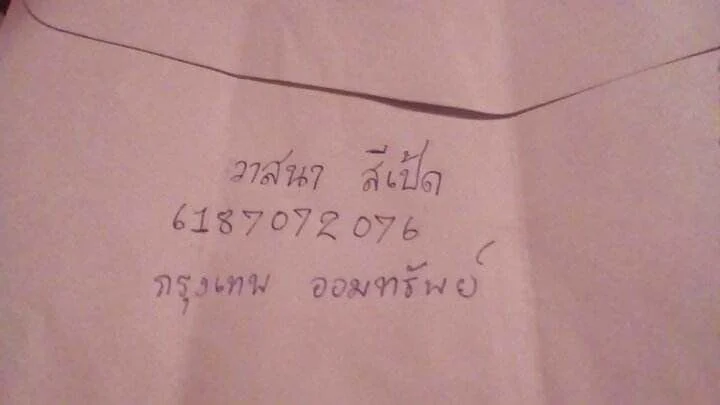 วาสนา สีเป้ด
6187072076
กรุงเทพ ออมทรัพย์